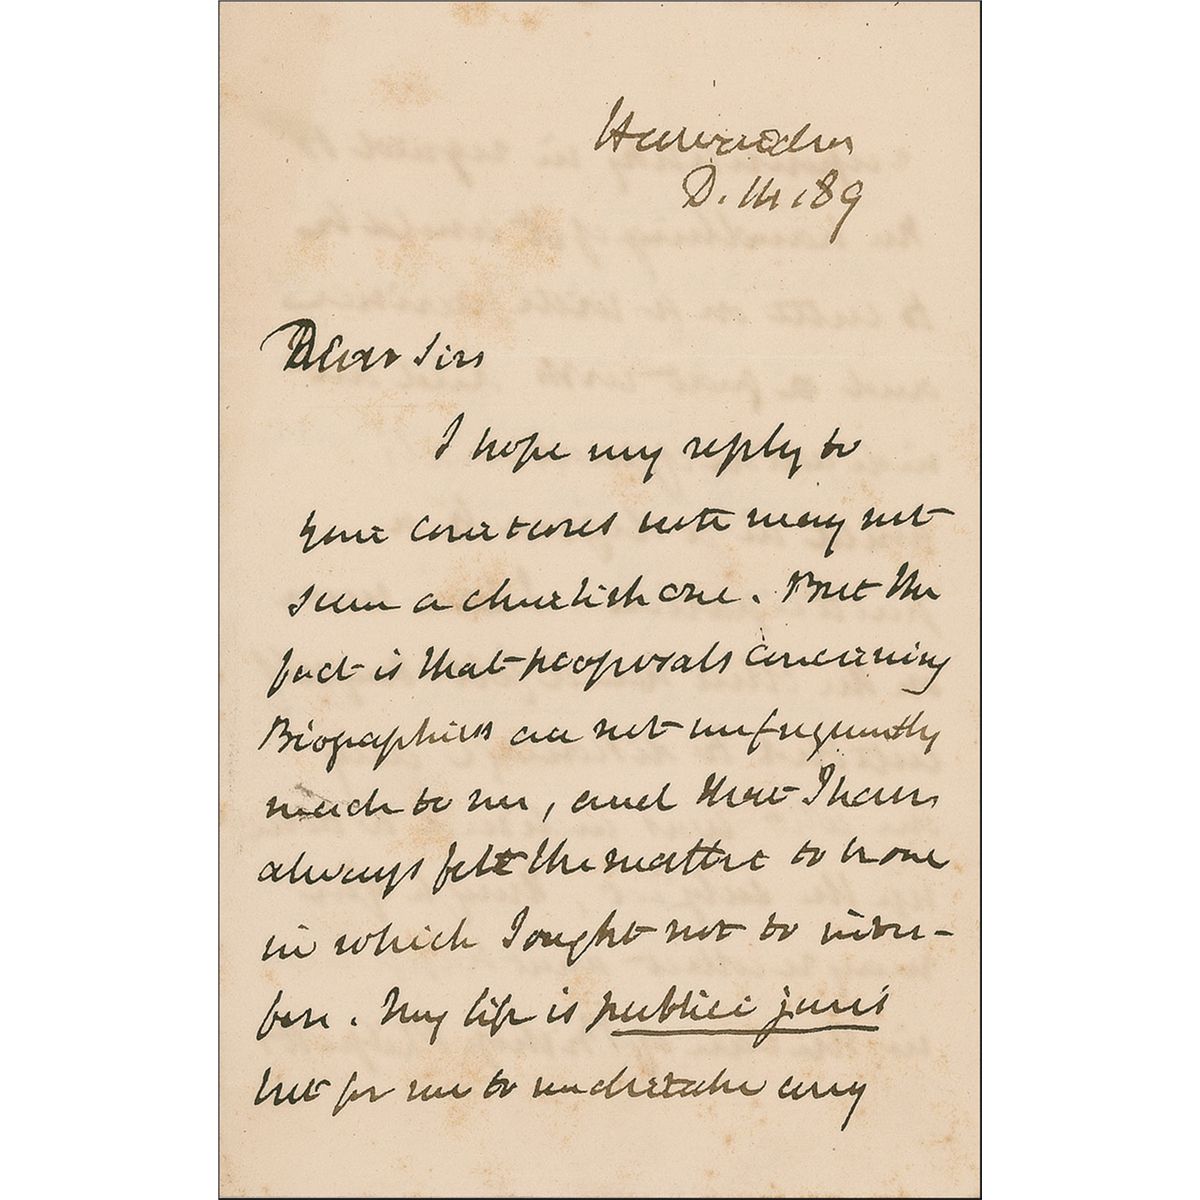 Hawarden
D. 14. 89
Dear Sirs
I hope my reply to
your courteous note may not
seem a churlish one. But the
fact is that proposals concerning
Biographies are not unfrequently
made to me, and that I have
always felt the matter to be one
in which I ought not to inter-
fere. My life is publici juris
but for me to undertake any